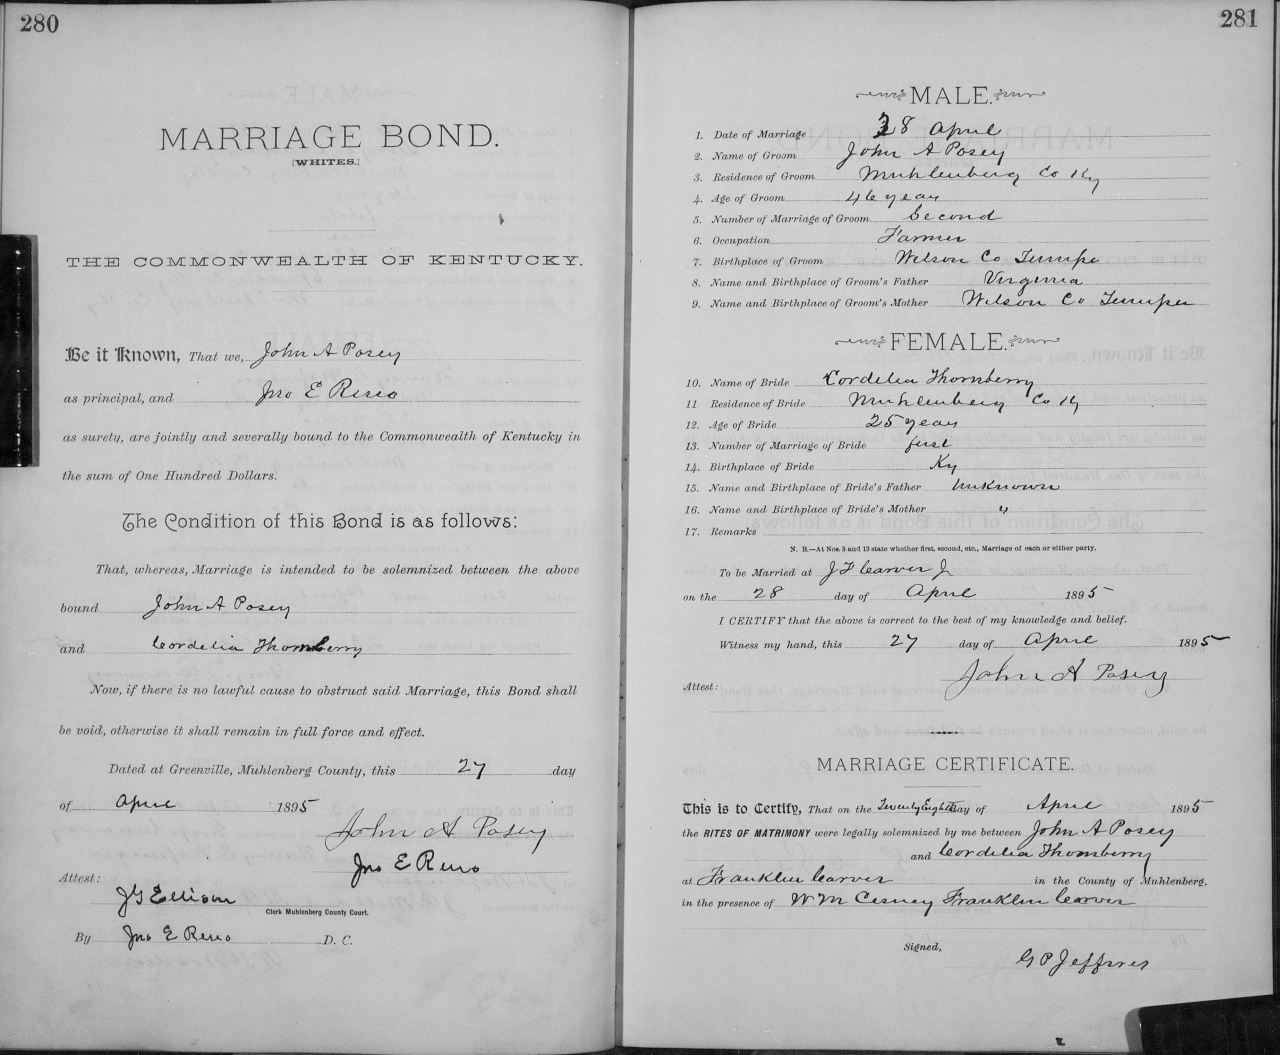 280
MARRIAGE BOND.
[WHITES.]
THE COMMONWEALTH OF KENTUCKY.
Be it Known, That we, John A Posey
as principal, and Jno E Reno
as surety, are jointly and severally bound to the Commonwealth of Kentucky in
the sum of One Hundred Dollars.
The Condition of this Bond is as follows:
That, whereas, Marriage is intended to be solemnized between the above
bound John A Posey
and Cordelia Thornberry
Now, if there is no lawful cause to obstruct said Marriage, this Bond shall
be void, otherwise it shall remain in full force and effect.
Dated at Greenville, Muhlenberg County, this 27 day
of April 1895
John A Posey
Jno E Reno
Attest:
J G Ellison
Clerk Muhlenberg County Court.
By Jno E Reno D. C.
281
MALE.
1. Date of Marriage 28 April
2. Name of Groom John A Posey
3. Residence of Groom Muhlenberg Co Ky
4. Age of Groom 46 years
5. Number of Marriage of Groom Second
6. Occupation Farmer
7. Birthplace of Groom Wilson Co
8. Name and Birthplace of Groom's Father Virginia
9. Name and Birthplace of Groom's Mother Wilson Co
FEMALE.
10. Name of Bride Cordelia Thornberry
11 Residence of Bride Muhlenberg Co Ky
12. Age of Bride 25 years
13. Number of Marriage of Bride first
14. Birthplace of Bride Ky
15. Name and Birthplace of Bride's Father Unknown
16. Name and Birthplace of Bride's Mother "
17. Remarks
N. B.—At Nos. 5 and 13 state whether first, second, etc., Marriage of each or either party.
To be Married at J F Carver Jr
on the 28 day of April 1895
I CERTIFY that the above is correct to the best of my knowledge and belief.
Witness my hand, this 27 day of April 1895
John A Posey
Attest:
MARRIAGE CERTIFICATE.
This is to Certify, That on the Twenty Eighth day of April 1895
the RITES OF MATRIMONY were legally solemnized by me between John A Posey
and Cordelia Thornberry
at Franklin Carver in the County of Muhlenberg,
in the presence of W M Franklin Carver
Signed,
G P Jeffries